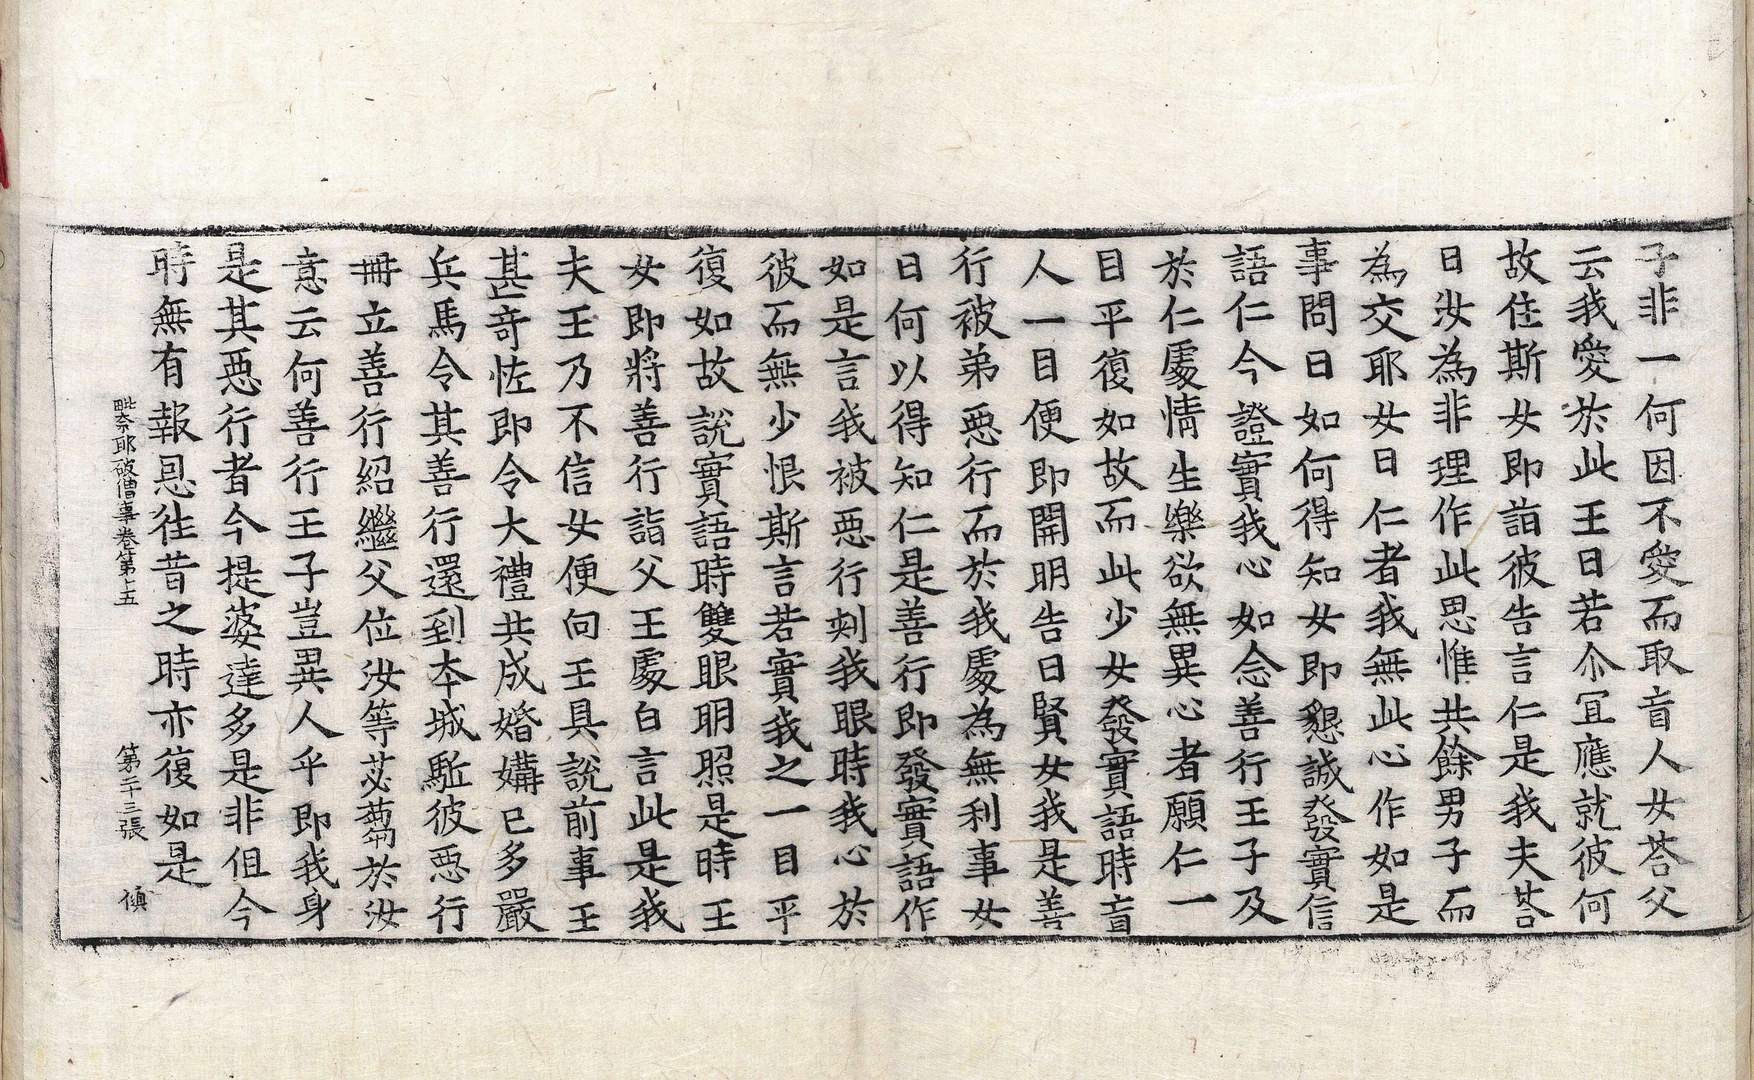 子非一何因不愛而取盲人女荅父
云我愛於此王曰若尒冝應就彼何
故住斯女即詣彼告言仁是我夫荅
曰汝為非理作此思惟共餘男子而
為交耶女曰仁者我無此心作如是
事問曰如何得知女即懇誠發實信
語仁今證實我心如念善行王子及
於仁處情生樂欲無異心者願仁一
目平復如故而此少女發實語時盲
人一目便即開明告曰賢女我是善
行被弟惡行而於我處為無利事女
曰何以得知仁是善行即發實語作
如是言我被惡行剜我眼時我心於
彼而無少恨斯言若實我之一目平
復如故說實語時雙眼明照是時王
女即將善行詣父王處白言此是我
夫王乃不信女便向王具說前事王
甚奇恠即令大禮共成婚媾已多嚴
兵馬令其善行還到本城駈彼惡行
冊立善行紹繼父位汝等苾蒭於汝
意云何善行王子豈異人乎即我身
是其惡行者今提婆達多是非但今
時無有報恩往昔之時亦復如是
毗奈耶破僧事卷第十五 第二十三張 傾